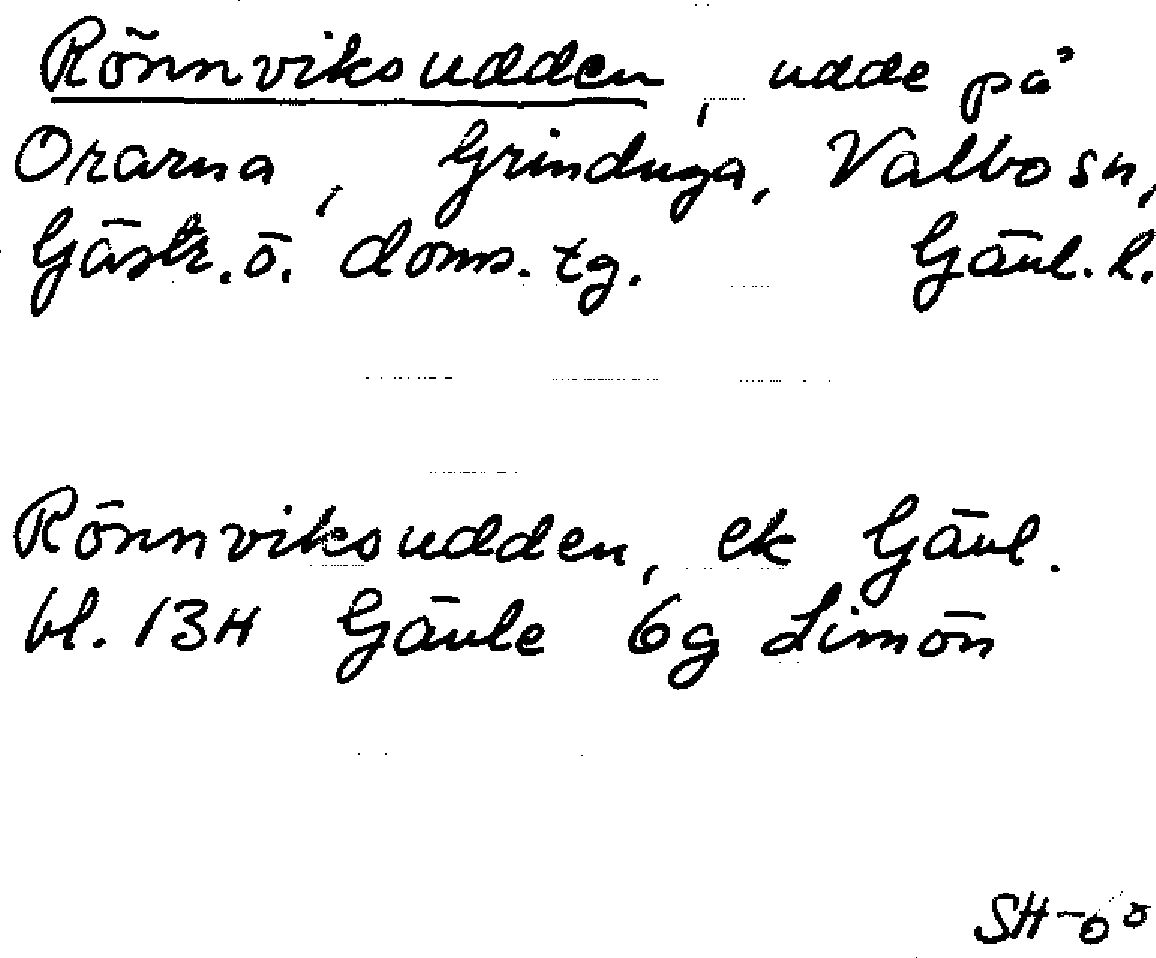 Rönnviksudden, udde på
Orarna, Grinduga, Valbo sn,
Gästr. ö. doms. tg. Gävl. l.
Rönnviksudden, ek Gävl.
bl. 13H Gävle 6g Limön
SH-00